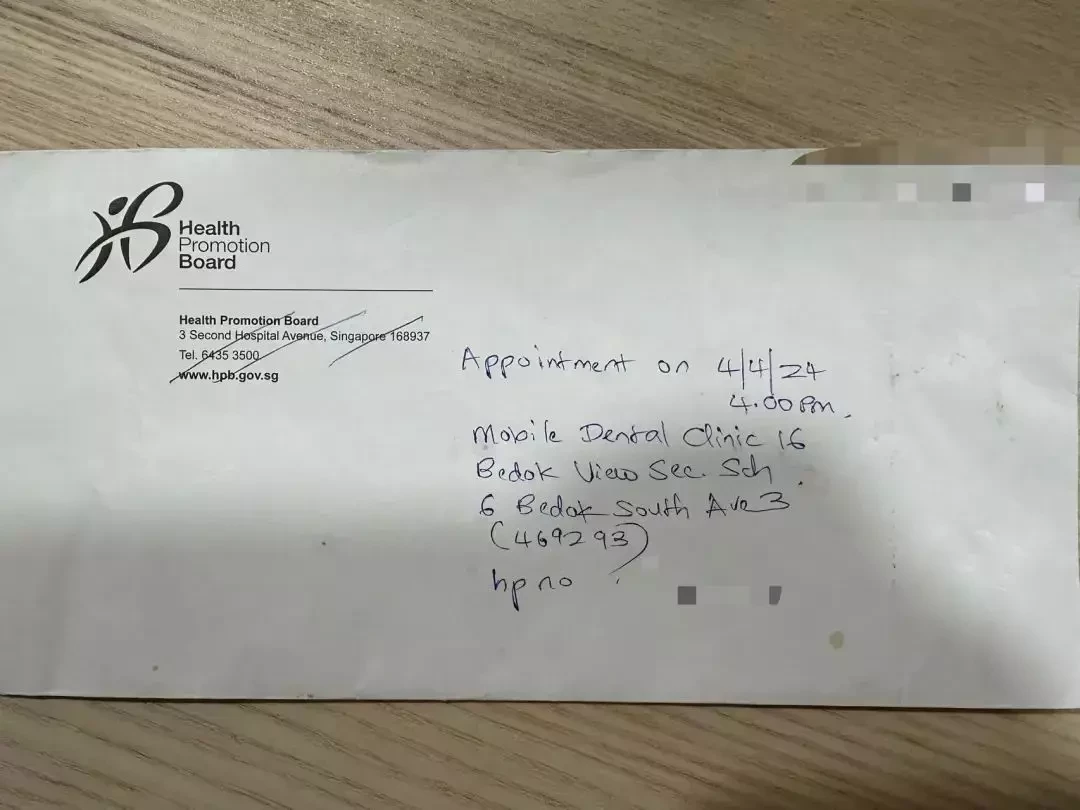 Health
Promotion
Board
Health Promotion Board
3 Second Hospital Avenue, Singapore 168937
Tel. 6435 3500
www.hpb.gov.sg
Appointment on 4/4/24
4.00 pm.
Mobile Dental Clinic 16
Bedok View Sec. Sch.
6 Bedok South Ave 3
(469293)
hp no :